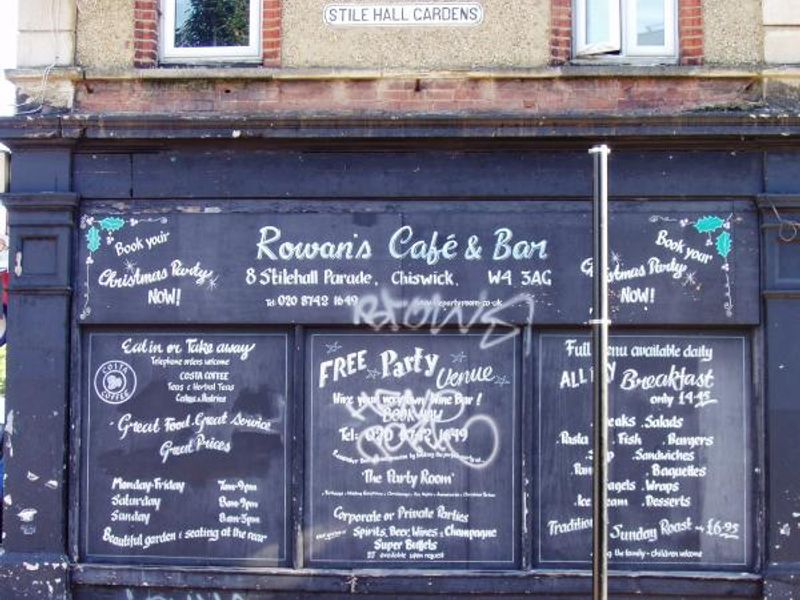 STILE HALL GARDENS
Book your
Christmas Party
NOW!
Rowan's Café & Bar
8 Stilehall Parade, Chiswick, W4 3AG
Tel: 020 8742 1649
Book your
Christmas Party
NOW!
Eat in or Take away
Telephone orders welcome
COSTA COFFEE
Teas & Herbal Teas
Cakes & Pastries
COSTA
COFFEE
Great Food. Great service
Great Prices
Monday-Friday 7am-9pm
Saturday 8am-9pm
Sunday 8am-5pm
Beautiful garden & seating at the rear
FREE Party
Venue
Hire your very own Wine Bar!
BOOK NOW
Tel: 020 8742 1649
"The Party Room"
Corporate or Private Parties
Spirits, Beer, Wines & Champagne
Super Buffets
available upon request
Full menu available daily
ALL Breakfast
only £4.95
Salads
Pasta . Fish . Burgers
Sandwiches
Baquettes
Wraps
Ice Desserts
Sunday Roast £6.95
the family - children welcome